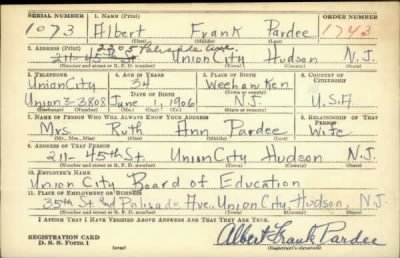 SERIAL NUMBER 1. NAME (Print) ORDER NUMBER
1073 Albert Frank Pardee 1743
(First) (Middle) (Last)
2. ADDRESS (Print) 2205 Palisade Ave.
211- 45th St. Union City Hudson N.J.
(Number and street or R. F. D. number) (Town) (County) (State)
3. TELEPHONE 4. AGE IN YEARS 5. PLACE OF BIRTH 6. COUNTRY OF CITIZENSHIP
Union City 34 Weehawken
DATE OF BIRTH
Union 3-3808 June 1, 1906 N.J. U.S.A
(Exchange) (Number) (Mo.) (Day) (Yr.) (State or country)
7. NAME OF PERSON WHO WILL ALWAYS KNOW YOUR ADDRESS 8. RELATIONSHIP OF THAT PERSON
Mrs. Ruth Ann Pardee Wife
(Mr., Mrs., Miss) (First) (Middle) (Last)
9. ADDRESS OF THAT PERSON
211- 45th St. Union City Hudson N.J.
(Number and street or R. F. D. number) (Town) (County) (State)
10. EMPLOYER'S NAME
Union City Board of Education
11. PLACE OF EMPLOYMENT OR BUSINESS
35th St. and Palisade Ave., Union City, Hudson, N.J.
(Number and street or R. F. D. number) (Town) (County) (State)
I AFFIRM THAT I HAVE VERIFIED ABOVE ANSWERS AND THAT THEY ARE TRUE.
REGISTRATION CARD
D. S. S. Form 1 (over) Albert Frank Pardee
(Registrant's signature)